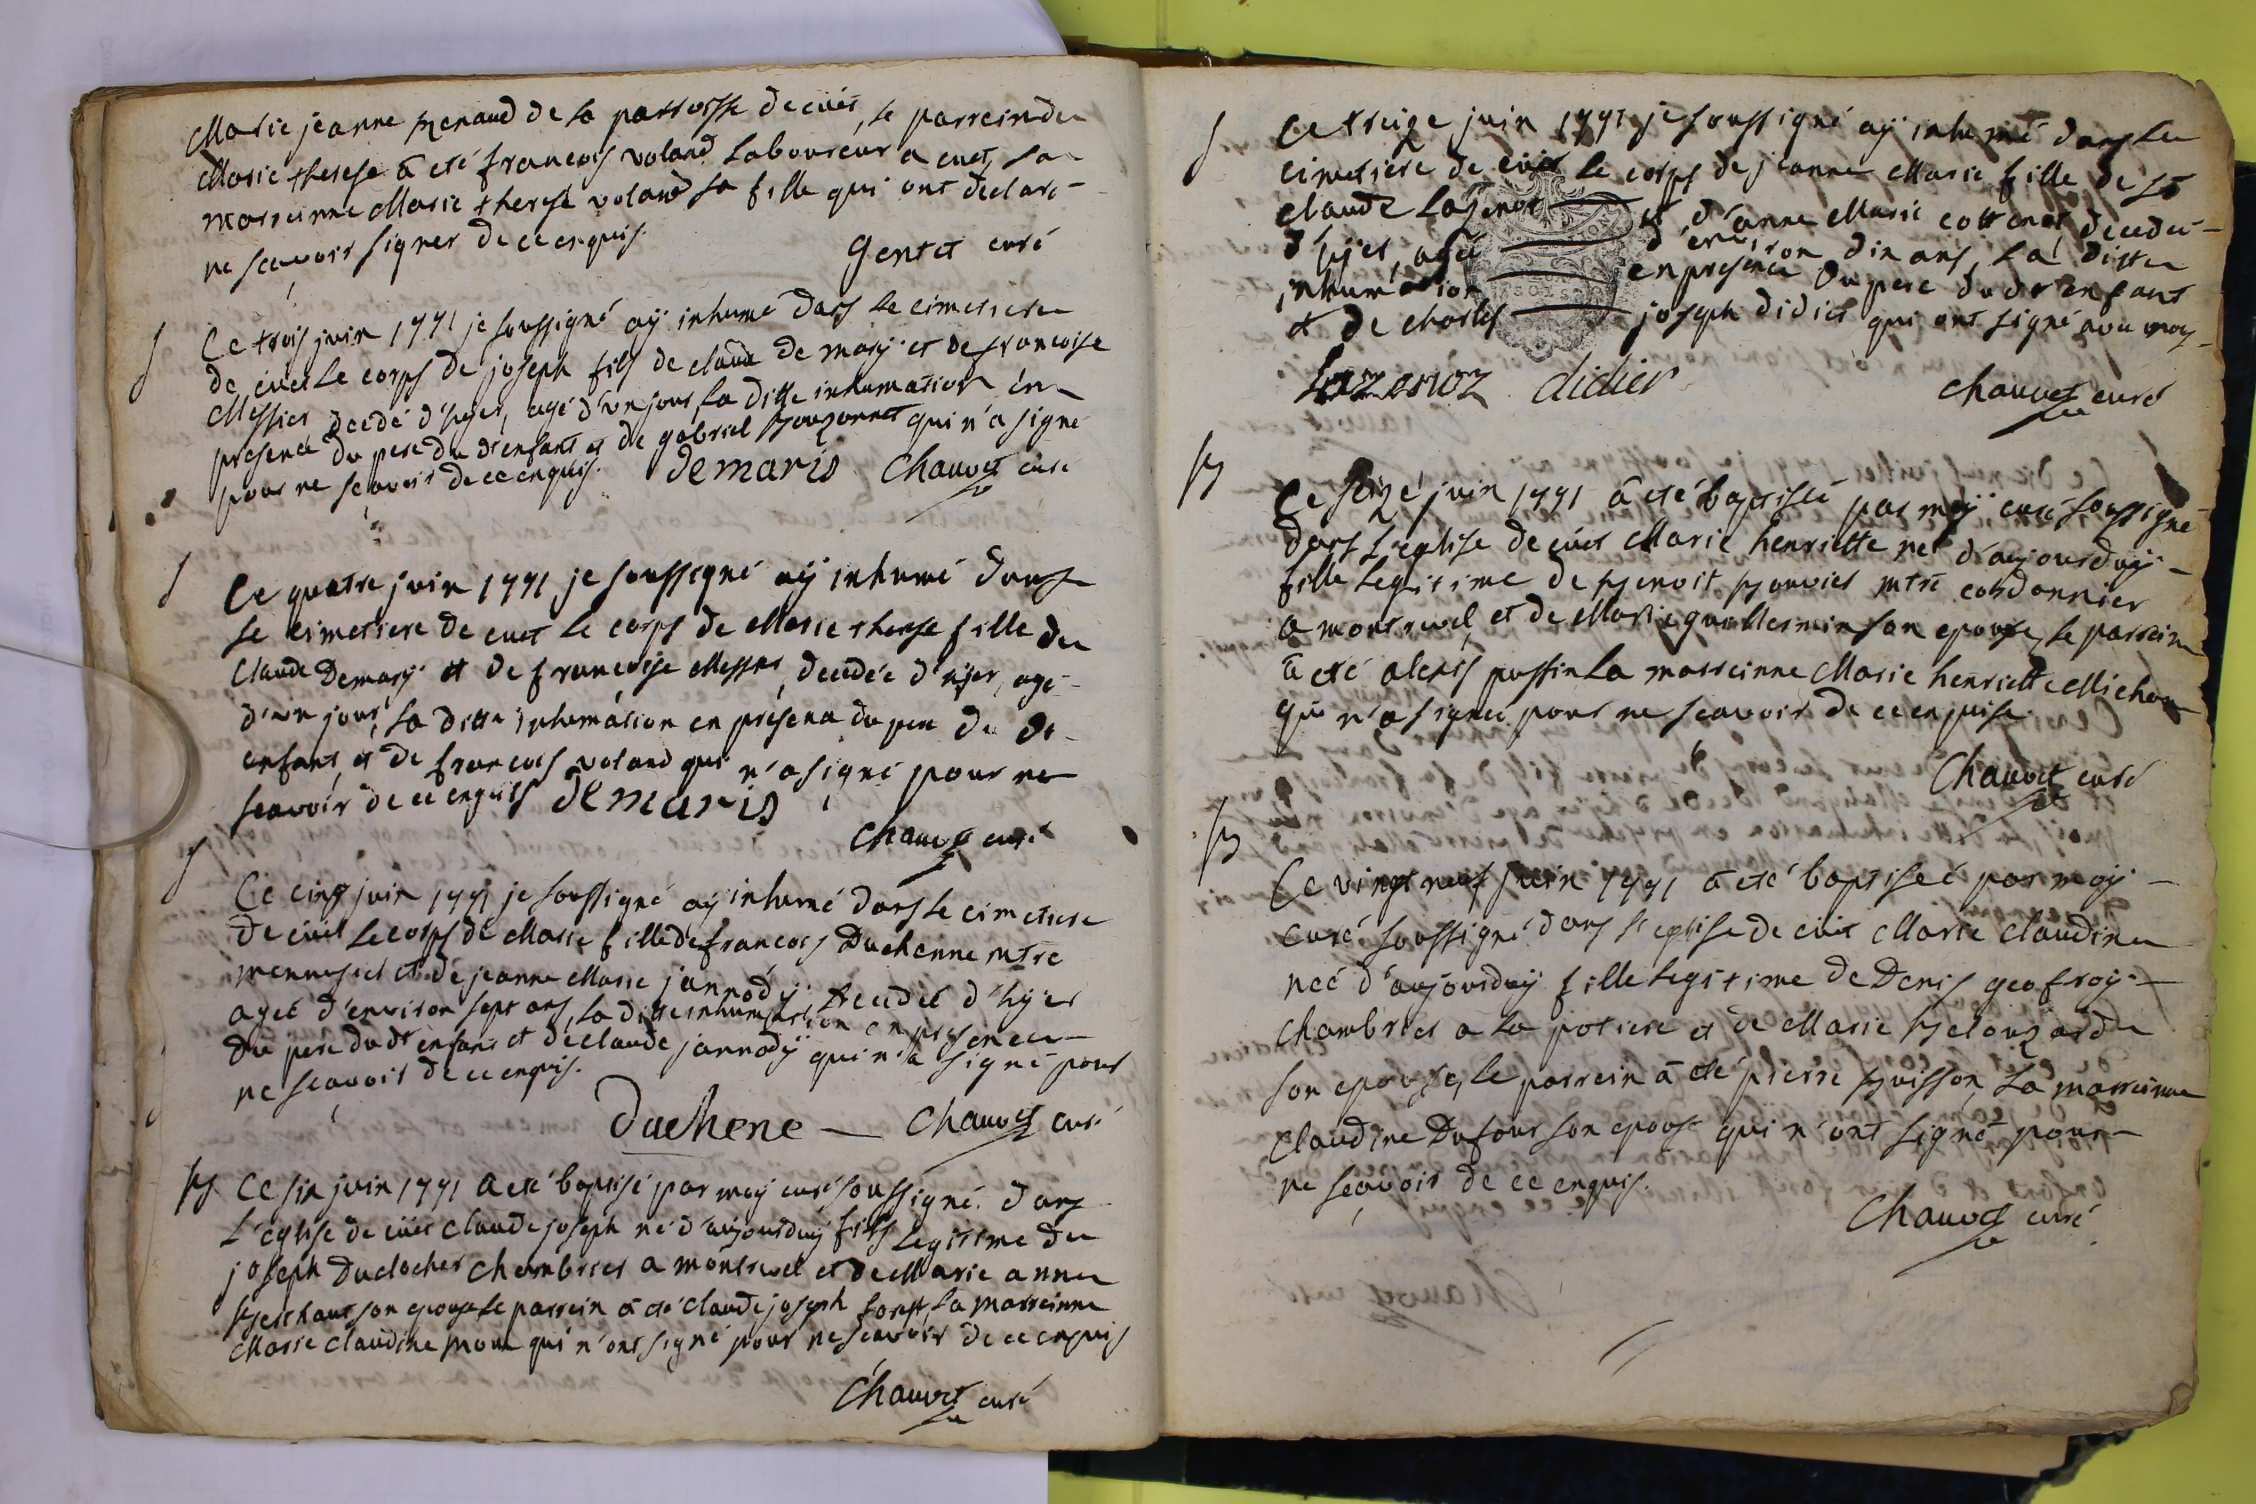 Marie jeanne Renaud de la parroisse de cuet, le parrein de
Marie therese à eté francois voland Laboureur a cuet, la
marreinne Marie therese voland sa fille qui ont declaré
ne scavoir signer de ce enquis.
Gentet curé
Ce trois juin 1771 je soussigné aÿ inhumé dans le cimetiere
de cuet Le corps de joseph fils de claude de marÿ et de francoise
Messier decedé d'hÿer, agé d'un jour, la ditte inhumation en
presence du pere du dt enfant et de gabriel Bouzonnet qui n'a signé
pour ne sçavoir de ce enquis.
demaris Chauvet curé
Ce quatre juin 1771 je soussigné aÿ inhumé dans
le cimetiere de cuet Le corps de Marie therese fille de
Claude Demarÿ et de francoise Messier, decedée d'hÿer, agé
d'un jour, la ditte inhumation en presence du pere du dt
enfant, et de francois voland qui n'a signé pour ne
scavoir de ce enquis demaris
Chauvet curé
Ce cinq juin 1771 je soussigné aÿ inhumé dans le cimetiere
de cuet Le corps de Marie fille de francois Duchenne mtre
mennusier et de jeanne Marie jannodÿ decedée d'hÿer
ageé d'environ sept ans, la ditte inhumation en presence
du pere du dt enfant et de claude jannodÿ qui n'a signé pour
ne sçavoir de ce enquis.
Duchene Chauvet curé
Ce six juin 1771 a eté baptisé par moÿ curé soussigné dans
L'eglise de cuet claude joseph né d'aujourduÿ fils Legitime de
joseph Duclocher chambrier a montrevel et de Marie anne
son epouse Le parrein à eté claude joseph la marreinne
Marie claudine qui n'ont signé pour ne scavoir de ce enquis
Chauvet curé
Ce treize juin 1771 je soussigné aÿ inhumé dans le
cimetiere de cuet Le corps de jeanne Marie fille de
claude Lazenot et d'anne Marie decedeé
d'hÿer, ageé d'environ dix ans, La ditte
inhumation en presence du pere du dt enfant
et de charles joseph didier qui ont signé avec moÿ
didier
Chauvet curé
Ce seize juin 1771 à eté baptiseé par moÿ curé soussigné
dans L'eglise de cuet Marie henriette neé d'aujourduÿ
fille Legitime de Benoit Bouvier mtre cordonnier
a montrevel, et de Marie guillermin son epouse, le parrein
à eté alexis puffin La marreinne Marie henriette Michon
qui n'a signeé pour ne scavoir de ce enquise.
Chauvet curé
Ce vingt neuf juin 1771 à eté baptiseé par moÿ
curé soussigné dans L'eglise de cuet Marie claudine
neé d'aujourduÿ fille Legitime de Denis geofroÿ
chambrier a la potiere et de Marie Belouzarde
son epouse, Le parrein à eté pierre Buisson, La marreinne
Claudine Dufour son epouse qui n'ont signé pour
ne sçavoir de ce enquis.
Chauvet curé